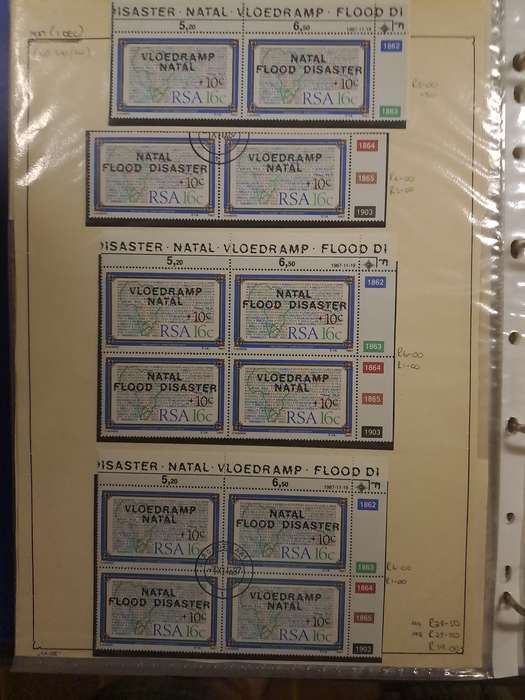 ISASTER · NATAL · VLOEDRAMP · FLOOD DI
5,20 6,50 1987-11-19
VLOEDRAMP NATAL
+10c
RSA 16c
NATAL FLOOD DISASTER
+10c
RSA 16c
1862
1863
NATAL
FLOOD DISASTER
+10c
RSA 16c
VLOEDRAMP
NATAL
+10c
RSA 16c
1864
1865
1903
DISASTER · NATAL · VLOEDRAMP · FLOOD DI
5,20 6,50 1987-11-19
VLOEDRAMP
NATAL
+10c
RSA 16c
NATAL
FLOOD DISASTER
+10c
RSA 16c
1862
1863
NATAL
FLOOD DISASTER
+10c
RSA 16c
VLOEDRAMP
NATAL
+10c
RSA 16c
1864
1865
1903
ISASTER · NATAL · VLOEDRAMP · FLOOD DI
5,20 6,50 1987-11-19
VLOEDRAMP
NATAL
+10c
RSA 16c
NATAL
FLOOD DISASTER
+10c
RSA 16c
1862
1863
NATAL
FLOOD DISASTER
+10c
RSA 16c
VLOEDRAMP
NATAL
+10c
RSA 16c
1864
1865
1903